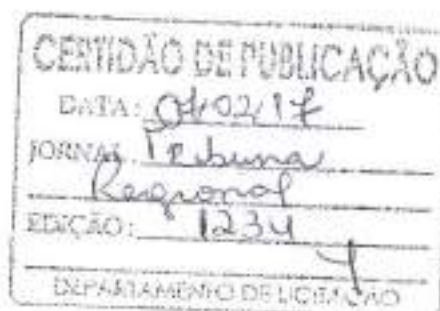 CERTIDÃO DE PUBLICAÇÃO
DATA: 04/02/17
JORNAL Tribuna
Regional
EDIÇÃO: 1234
DEPARTAMENTO DE LICITAÇÃO